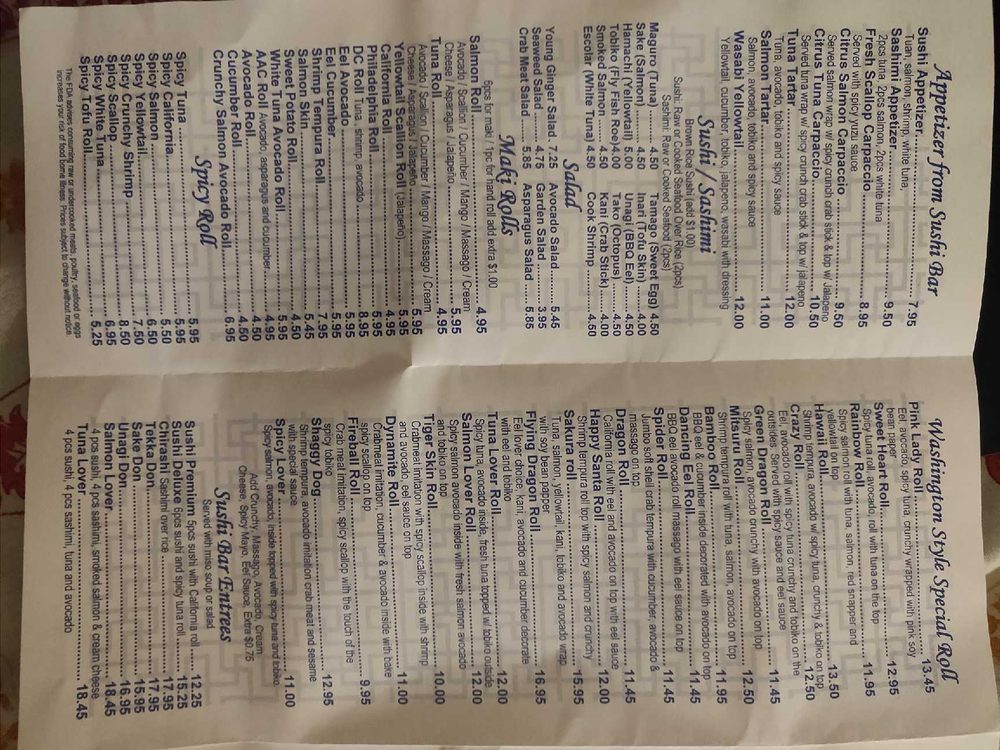 Appetizer from Sushi Bar
Sushi Appetizer 7.95
Tuan, salmon, shrimp, white tuna,
Sashimi Appetizer 9.50
2pcs tuna, 2pcs salmon, 2pcs white tuna
Fresh Scallop Carpaccio 8.95
Served with spicy yuzu sauce
Citrus Salmon Carpaccio 9.50
Served salmon wrap w/ spicy crunch crab stick & top w/ Jalapeno
Citrus Tuna Carpaccio 10.50
Served tuna wrap w/ spicy crunch crab stick & top w/ jalapeno
Tuna Tartar 12.00
Tuna, avocado, tobiko and spicy sauce
Salmon Tartar 11.00
Salmon, avocado, tobiko and spicy sauce
Wasabi Yellowtail 12.00
Yellowtail, cucumber, tobiko, jalapeno, wasabi with dressing
Sushi / Sashimi
Brown Rice Sushi (add $1.00)
Sushi: Raw or Cooked Seafood Over Rice (2pcs)
Sashimi: Raw or Cooked Seafood (2pcs)
Maguro (Tuna) 4.50 Tamago (Sweet Egg) 4.50
Sake (Salmon) 4.50 Inari (Tofu Skin) 4.00
Hamachi (Yellowtail) 5.00 Unagi (BBQ Eel) 4.50
Tobiko (Fly Fish Roe) 4.00 Tako (Octopus) 4.50
Smoked Salmon 4.00 Kani (Crab Stick) 4.00
Escolar (White Tuna) 4.50 Cook Shrimp 4.50
Salad
Young Ginger Salad 7.25 Avocado Salad 5.45
Seaweed Salad 4.75 Garden Salad 3.95
Crab Meat Salad 5.85 Asparagus Salad 5.85
Maki Rolls
6pcs for maki / 1pc for hand roll add extra $1.00
Salmon Roll 4.95
Avocado / Scallion / Cucumber / Mango / Massago / Cream
Cheese / Asparagus / Jalapeño 5.95
Tuna Roll 4.95
Avocado / Scallion / Cucumber / Mango / Massago / Cream
Cheese / Asparagus / Jalapeño 5.95
Yellowtail Scallion Roll (Jalapeño) 5.95
California Roll 4.95
Philadelphia Roll 5.95
DC Roll Tuna, shrimp, avocado 8.95
Eel Avocado 5.95
Eel Cucumber 5.95
Shrimp Tempura Roll 7.95
Salmon Skin 5.45
Sweet Potato Roll 4.50
White Tuna Avocado Roll 5.95
AAC Roll Avocado, asparagus and cucumber 4.95
Avocado Roll 4.50
Cucumber Roll 4.50
Crunchy Salmon Avocado Roll 6.95
Spicy Roll
Spicy Tuna 5.95
Spicy California 5.95
Spicy Salmon 6.50
Spicy Yellowtail 7.50
Spicy Crunchy Shrimp 8.50
Spicy Scallop 6.95
Spicy White Tuna 5.95
Spicy Tofu Roll 5.25
The FDA advises consuming raw or undercooked meats, poultry, seafood or eggs
increases your risk of food borne illness. Prices subject to change without notice
Washington Style Special Roll
Pink Lady Roll 13.45
Eel, avocado, spicy tuna, crunchy wrapped with pink soy
bean paper
Sweet Heart Roll 12.95
Spicy tuna roll, avocado, roll with tuna on the top
Rainbow Roll 11.95
Spicy salmon roll with tuna, salmon, red snapper and
yellowtail on top
Hawaii Roll 13.50
Shrimp tempura, avocado w/ spicy tuna, crunchy & tobiko on top
Crazy Roll 12.50
Eel, avocado roll with spicy tuna crunchy and tobiko on the
outsides. Served with spicy sauce and eel sauce
Green Dragon Roll 11.45
Spicy salmon, avocado crunchy with avocado on top
Mitsuru Roll 12.50
Shrimp tempura roll with tuna, salmon, avocado on top
Bamboo Roll 11.95
BBQ eel & cucumber inside decorated with avocado on top
Dancing Eel Roll 11.45
BBQ eel avocado roll massago with eel sauce on top
Spider Roll 11.45
Jumbo soft shell crab tempura with cucumber, avocado &
massago on top
Dragon Roll 11.45
California roll with eel and avocado on top with eel sauce
Happy Santa Roll 12.00
Shrimp tempura roll top with spicy salmon and crunchy
Sakura roll 15.95
Tuna, salmon, yellowtail, kani, tobiko and avocado wrap
with soy bean paper
Flying Dragon Roll 16.95
Eel over choice, kani, avocado and cucumber decorate
with eel and tobiko
Tuna Lover Roll 12.00
Spicy tuna, avocado inside, fresh tuna topped w/ tobiko outside
Salmon Lover Roll 12.00
Spicy salmon avocado inside with fresh salmon avocado
and tobiko on top
Tiger Skin Roll 10.00
Crabmeat imitation with spicy scallop inside with shrimp
and avocado, eel sauce on top
Dynamite Roll 11.00
Crabmeat imitation, cucumber & avocado inside with bake
spicy scallop on top
Fireball Roll 9.95
Crab meat imitation, spicy scallop with the touch of the
spicy tobiko
Shaggy Dog 12.95
Shrimp tempura, avocado imitation crab meat and sesame
with special sauce
Spicy Lover 11.00
Spicy salmon, avocado, inside topped with spicy tuna and tobiko
Add: Crunchy, Massago, Avocado, Cream
Cheese, Spicy Mayo, Eel Sauce, Extra $0.75
Sushi Bar Entrees
Served with miso soup or salad
Sushi Premium 5pcs sushi with California roll 12.25
Sushi Deluxe 6pcs sushi and spicy tuna roll 15.25
Chirashi Sashimi over rice 17.95
Tekka Don 17.95
Sake Don 15.95
Unagi Don 16.95
Salmon Lover 18.45
4 pcs sushi, 4 pcs sushi, smoked salmon & cream cheese
Tuna Lover 18.45
4 pcs sushi, 4 pcs sashimi, tuna and avocado